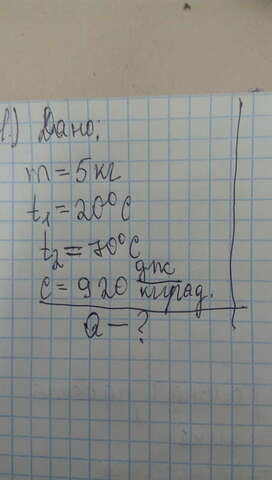 1.) Дано:
m = 5 кг
t₁ = 20°C
t₂ = 70°C
c = 920 дж/кг град.
Q — ?